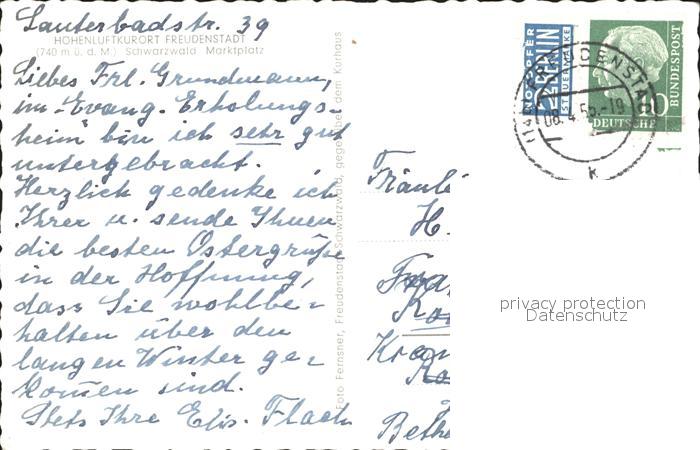 Lauterbadstr. 39
HÖHENLUFTKURORT FREUDENSTADT
(740 m ü. d. M.) Schwarzwald Marktplatz
Liebes Frl. Grundmann,
im Evang. Erholungs-
heim bin ich sehr gut
untergebracht.
Herzlich gedenke ich
Ihrer u. sende Ihnen
die besten Ostergrüße
in der Hoffnung,
dass Sie wohlbe-
halten über den
langen Winter ge-
kommen sind.
Stets Ihre Elis. Flach
Foto Fernsner, Freudenstadt Schwarzwald, gegenüber dem Kurhaus
NOTOPFER
2 BERLIN
STEUERMARKE
DEUTSCHE
BUNDESPOST
10
08.4.55-19
k
Fräul
H.
Kran
Beth
privacy protection
Datenschutz